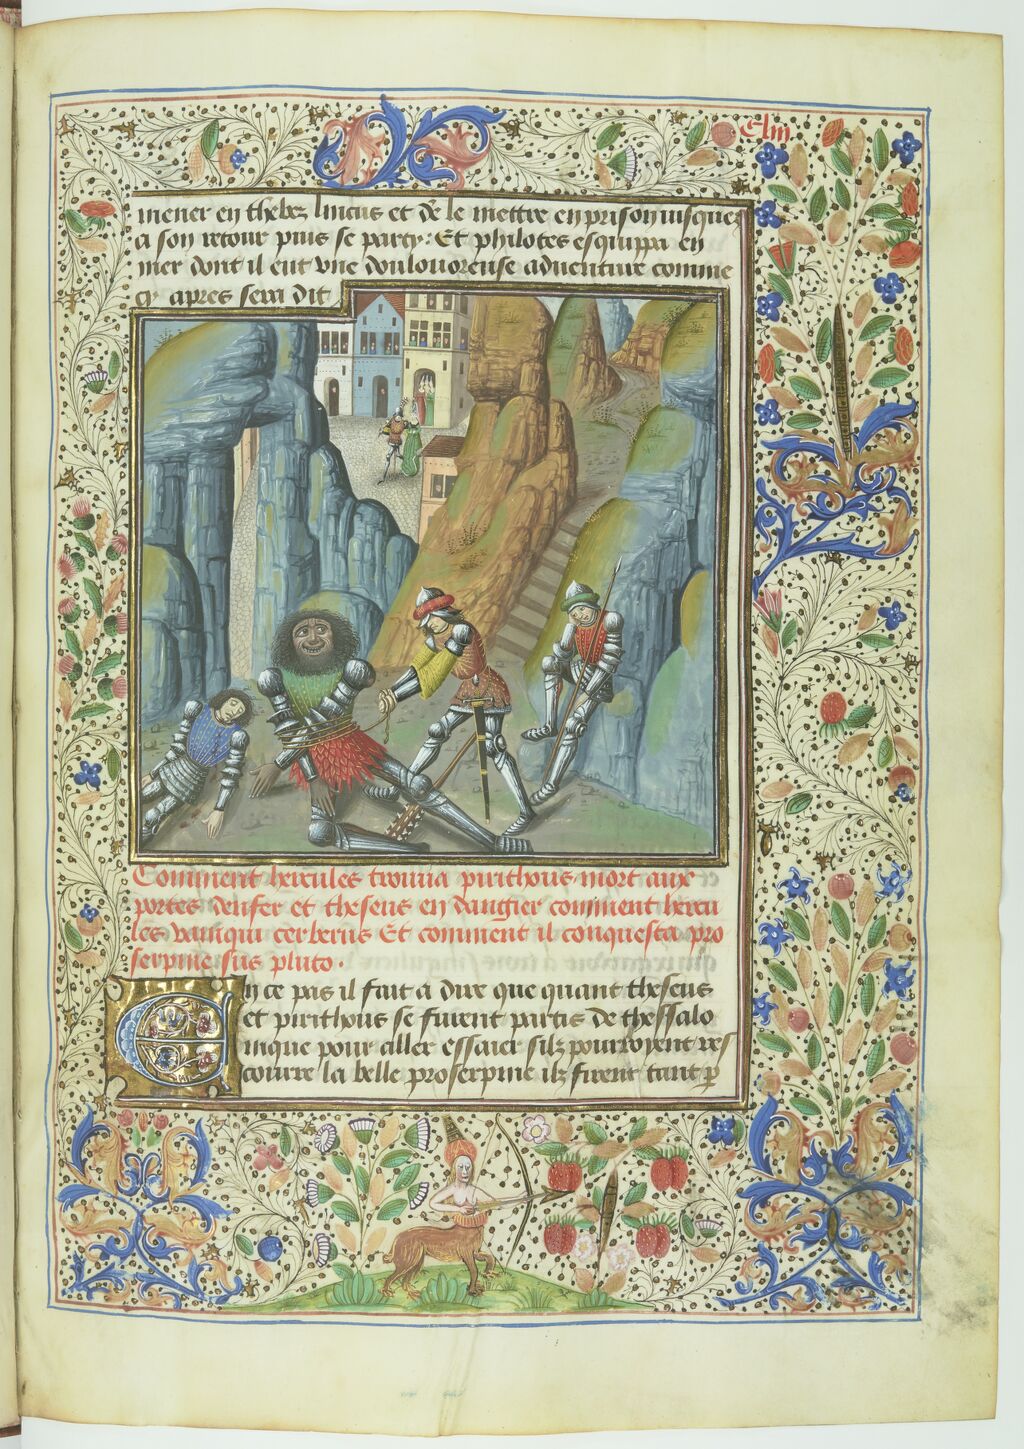 Clm
mener en thebez lincus et de le mettre en prison iusques
a son retour puis se party: Et philotes esquippa en
mer dont il eut vne doulouoreuse aduenture comme
cy apres sera dit
Comment hercules trouua pirithous mort aux
portes denfer et theseus en dangier comment hercu
les vainqui cerberus Et comment il conquesta pro
serpine sus pluto.
En ce pas il fait a dire que quant theseus
et pirithous se furent partis de thessalo
nique pour aller essaier silz pourroyent res
courre la belle proserpine ilz firent tant p